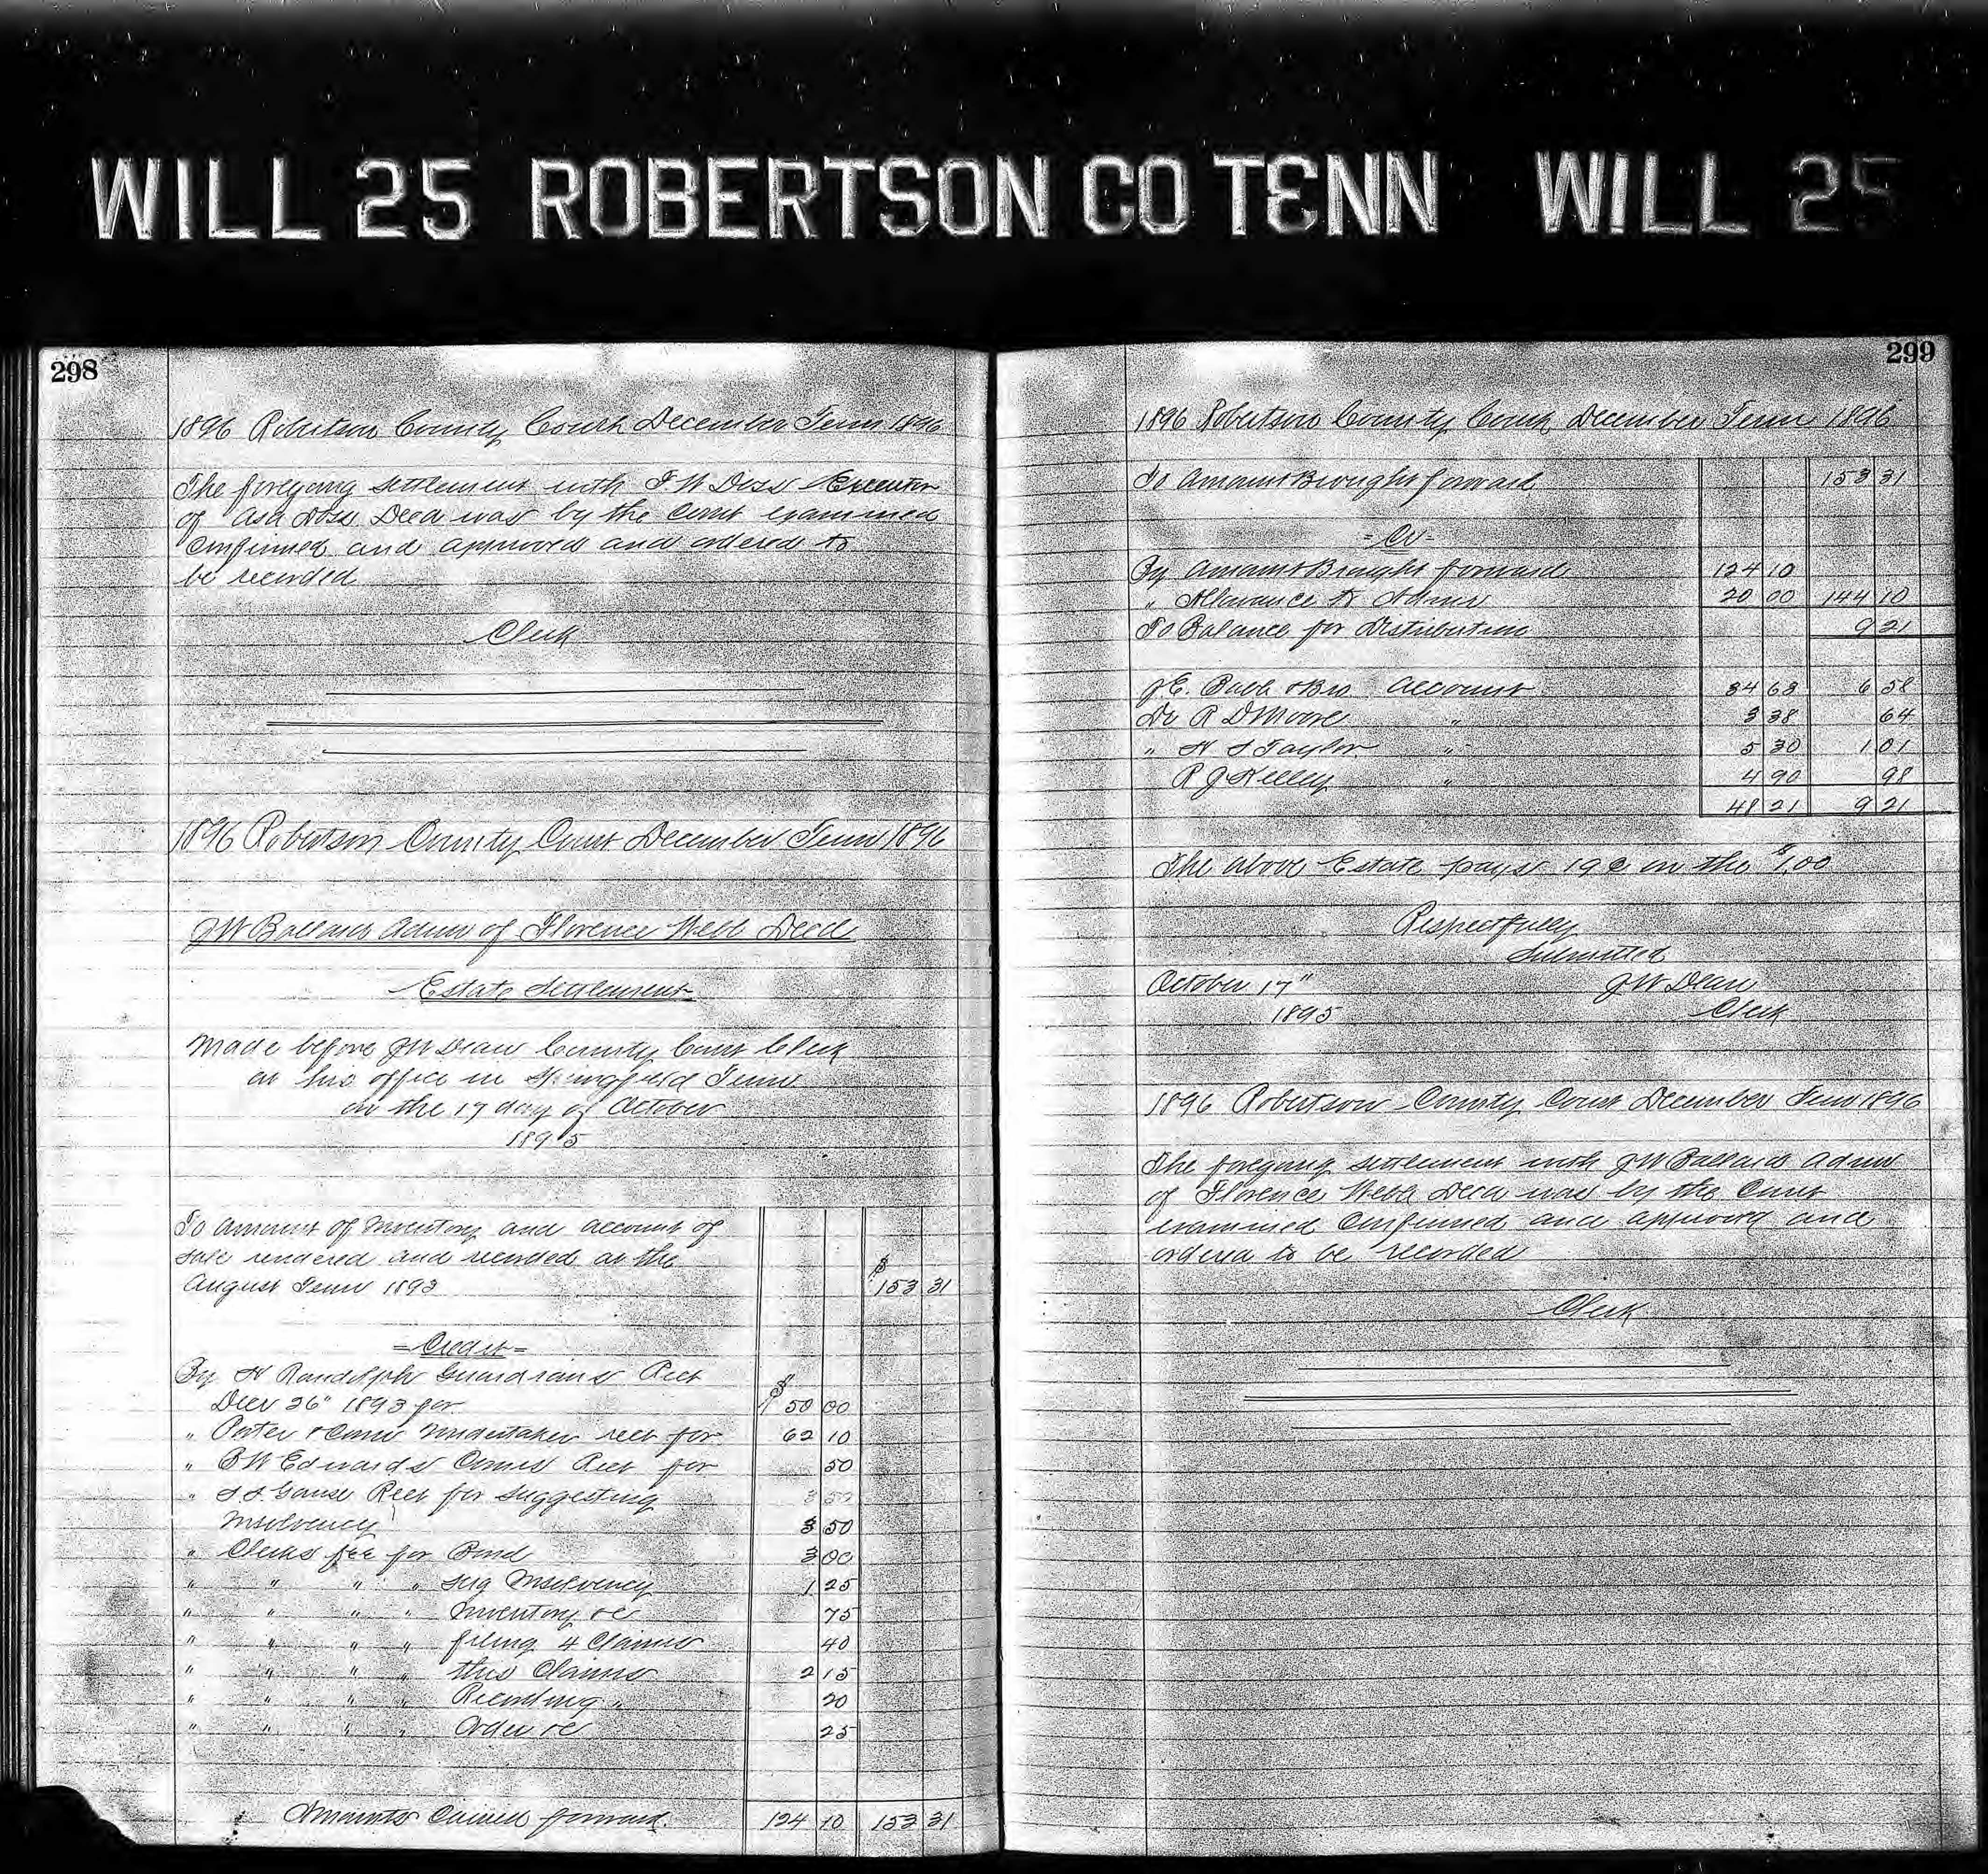 WILL 25 ROBERTSON CO TENN WILL 25
298
1896 Robertson County Court December Term 1896
The foregoing settlement with Doss Executor
of Asa Doss Decd was by the Court examined
Confirmed and approved and ordered to
be recorded
Clerk
1896 Robertson County Court December Term 1896
JW Ballard Admr of Florence Webb Decd
Estate Settlement
Made before JW Dean County Court Clerk
at his office in Springfield Tenn
on the 17 day of October
1895
To Amount of Inventory and account of
sale rendered and recorded at the $
August Term 1893 153 31
=Credit=
By Randolph Guardians Rect $
Decr 26" 1893 for 50 00
" Porter & Undertaker rect for 62 10
" Edwards Rect for 50
" Gause Rect for Suggesting 3 50
Insolvency 3 50
" Clerks fee for Bond 3 00
" " " " sug Insolvency 1 25
" " " " Inventory &c 75
" " " " filing 4 Claims 40
" " " " this Claims 2 15
" " " " Recording " 20
" " " " Order &c 25
Amounts Carried forward. 124 10 153 31
299
1896 Robertson County Court December Term 1896
To Amount Brought forward 153 31
=Cr=
By Amount Brought forward 124 10
" Allowance to Admr 20 00 144 10
To Balance for Distribution 9 21
& Bro account 34 63 6 58
Dr R D Moore " 3 38 64
" Taylor " 5 30 1 01
R J Kelley " 4 90 98
48 21 9 21
The above Estate pays 19 c on the $1,00
Respectfully
Submitted
October 17" JW Dean
1895 Clerk
1896 Robertson County Court December Term 1896
The foregoing settlement with JW Ballard Admr
of Florence Webb Decd was by the Court
examined Confirmed and approved and
ordered to be recorded
Clerk